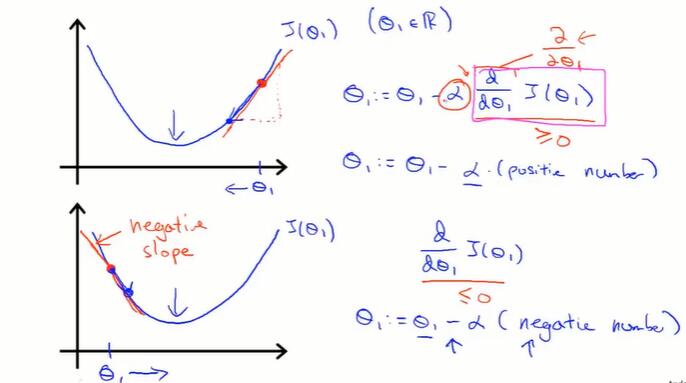 J(Θ₁) (Θ₁ ∈ ℝ)
∂/∂Θ₁ ←
Θ₁ := Θ₁ - α d/dΘ₁ J(Θ₁)
≥ 0
Θ₁ := Θ₁ - α · (positie number)
← Θ₁
negative
slope
J(Θ₁)
d/dΘ₁ J(Θ₁)
≤ 0
Θ₁ := Θ₁ - α (negatie number)
Θ₁ →